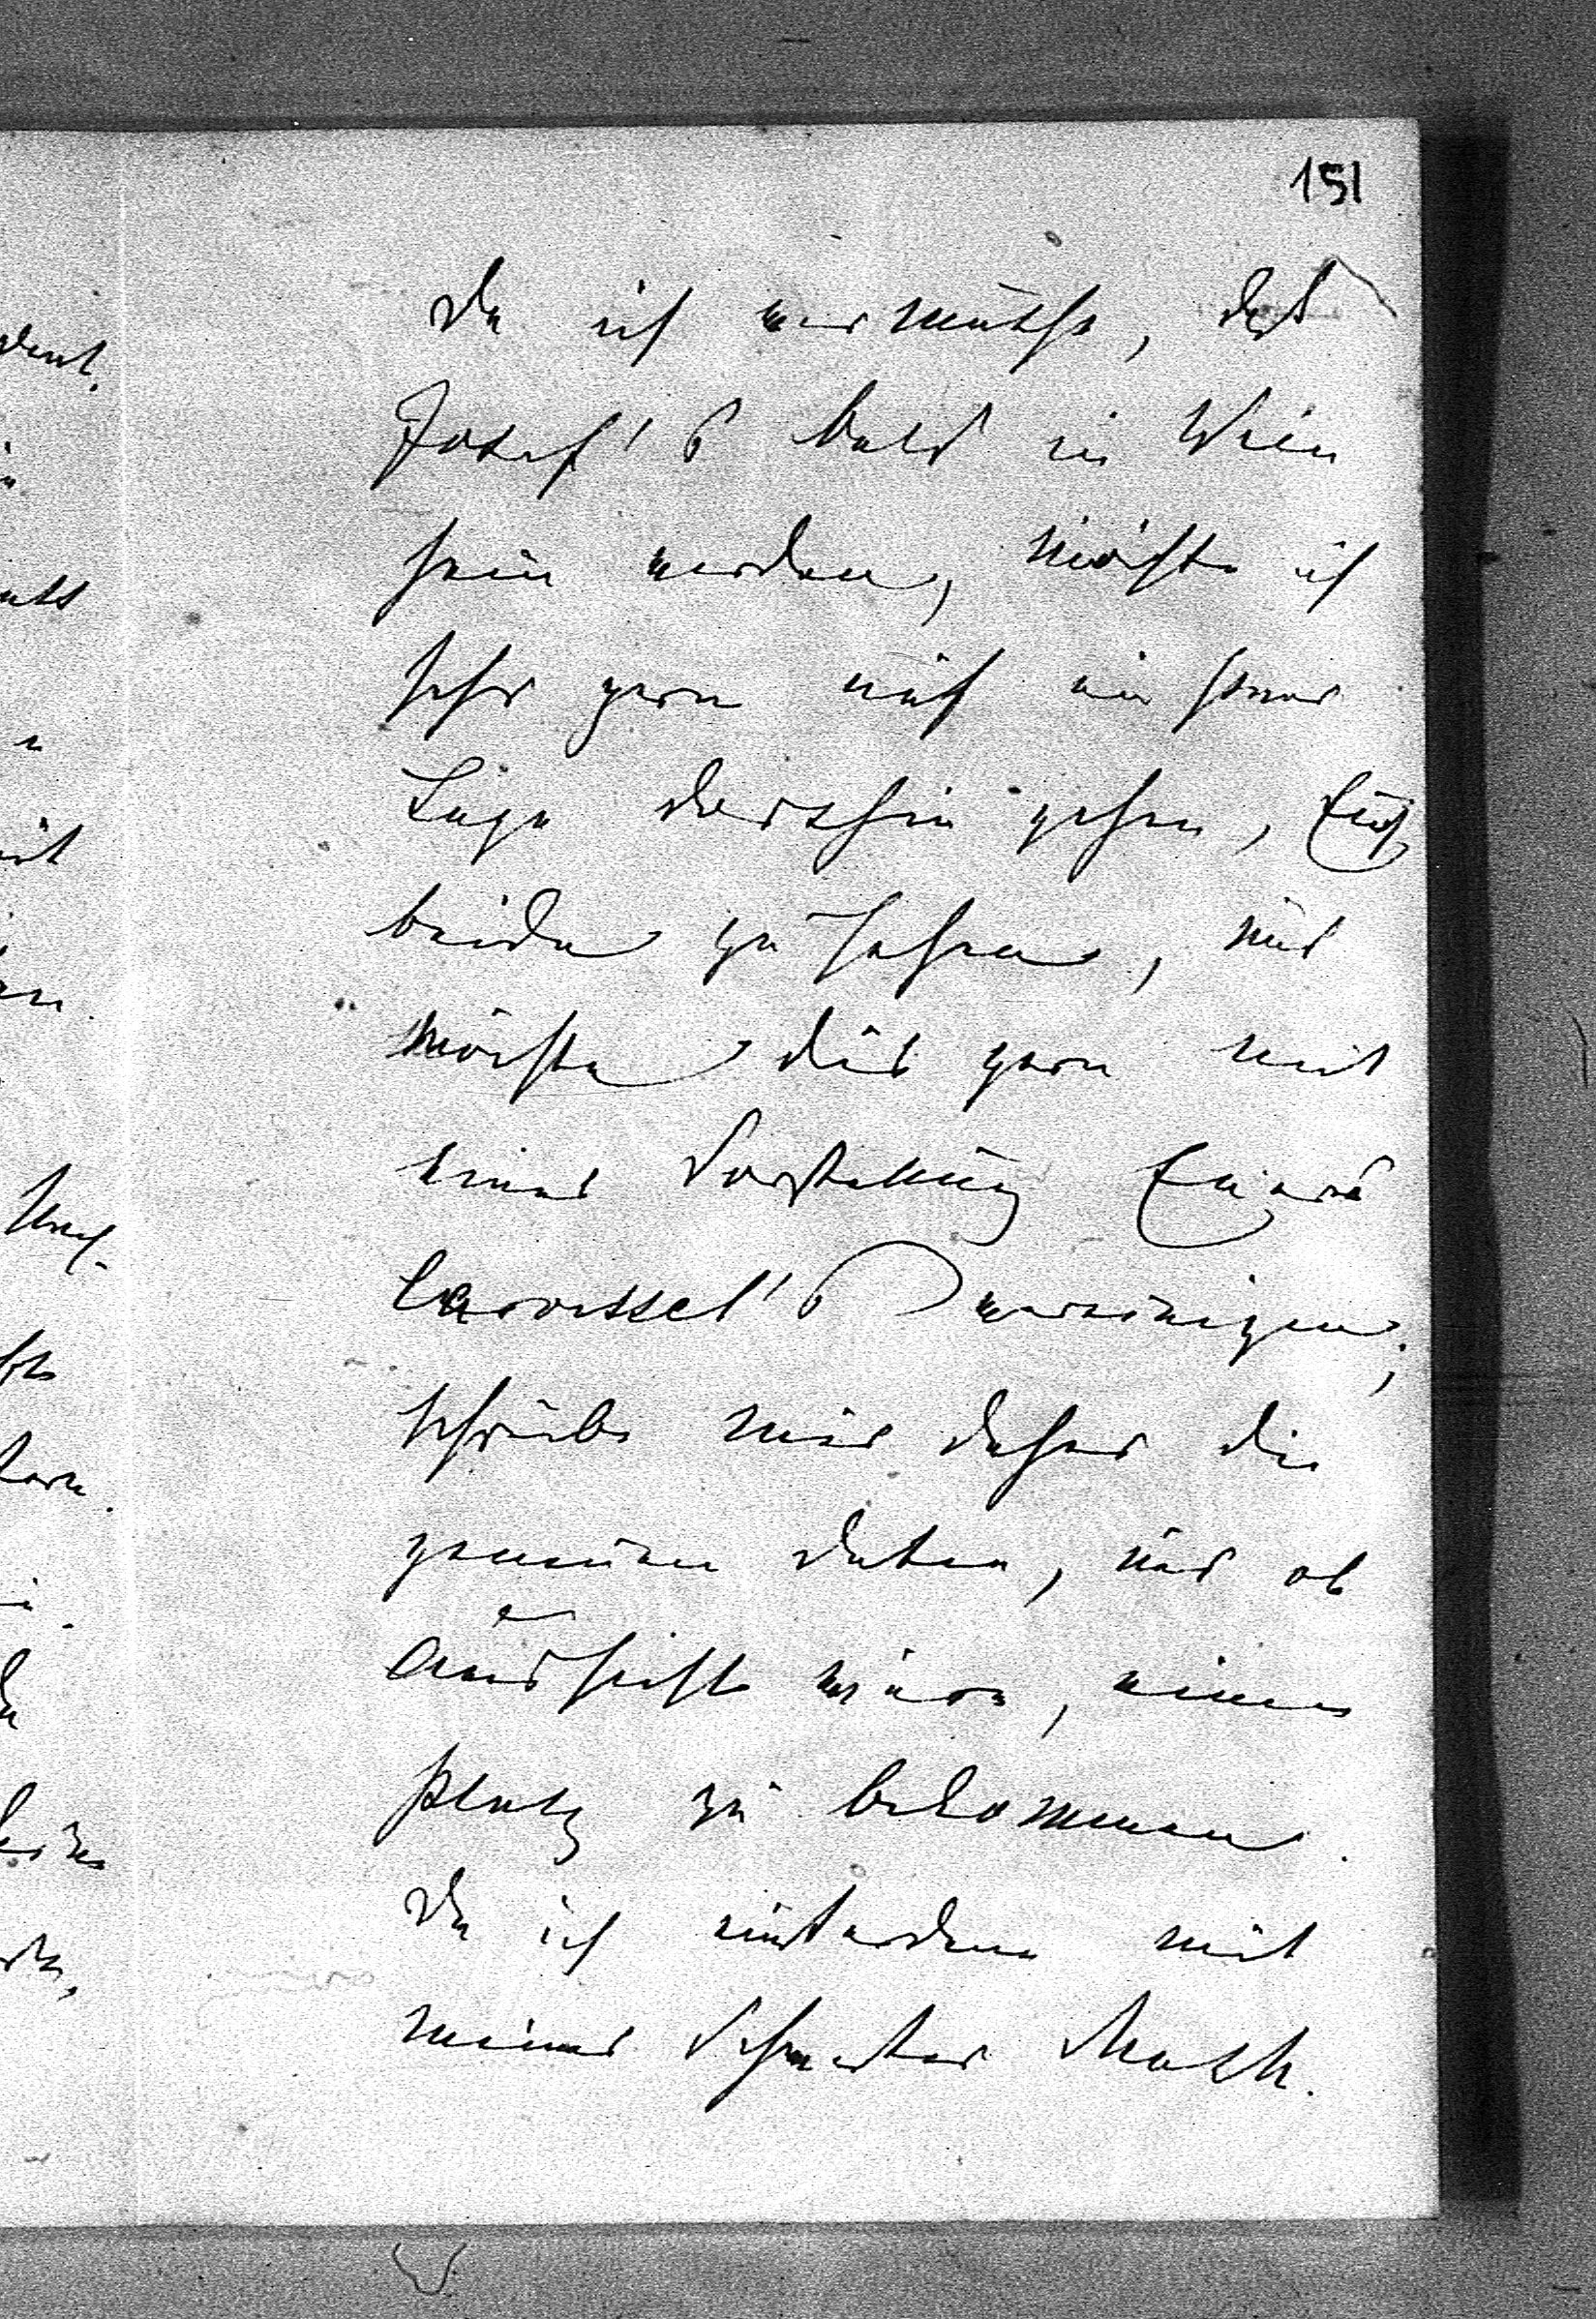 151
Da ich vermuthe, daß
Josef's bald in Wien
sein werden, möchte ich
sehr gern auf ein paar
Tage dorthin gehen, Euch
beide zu sehen, und
möchte dies gern mit
einer Vorstellung Eures
Caroussel's vereinigen;
schreibe mir daher die
genauen Daten, und ob
Aussicht wäre, einen
Platz zu bekommen.
Da ich außerdem mit
meiner Schwester Math.